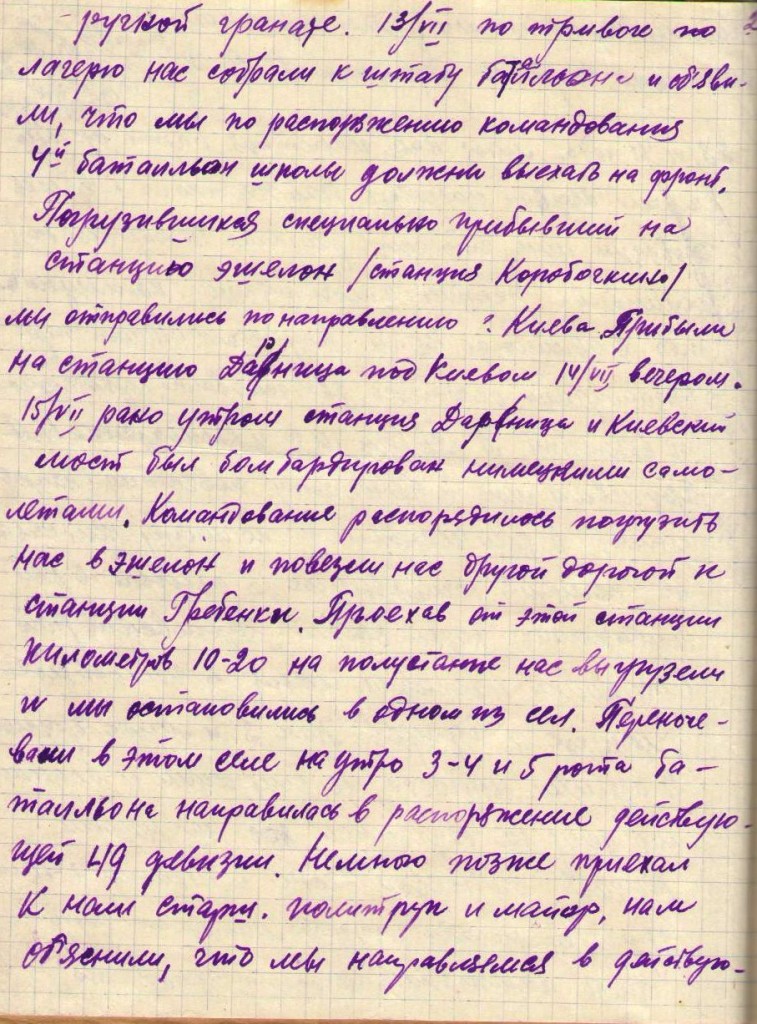 ручной гранате. 13/VII по тривоге по
лагерю нас собрали к штабу батальона и об'яви-
ли, что мы по распоряжению командования
4й баталльон школы должны выехать на фронт.
Погрузившихся специально прибывший на
станцию эшелон /станция Коробочкино/
мы отправились по направлению г. Киева. Прибыли
на станцию Дарница под Киевом 14/VII вечером.
15/VII рано утром станция Дарница и Киевский
мост был бомбардирован нимецкими само-
летами. Командование распорядилось погрузить
нас в эшелон и повезли нас другой дорогой к
станции Гребенки. Проехав от этой станции
километров 10-20 на полустанке нас выгрузели
и мы остановились в одном из сел. Переноче-
вали в этом селе на утро 3-4 и 5 рота ба-
талльона направилась в распоряжение действую-
щей 49 девизии. Немного позже приехал
к нам старш. политрук и майор, нам
об'яснили, что мы направляемся в действую-